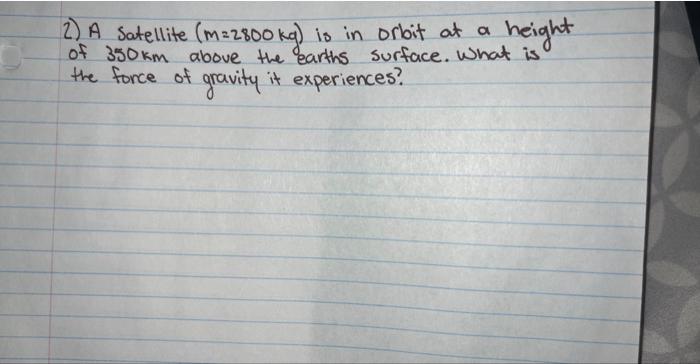 2) A Satellite (m=2800 kg) is in orbit at a height
of 350 km above the earths surface. What is
the force of gravity it experiences?